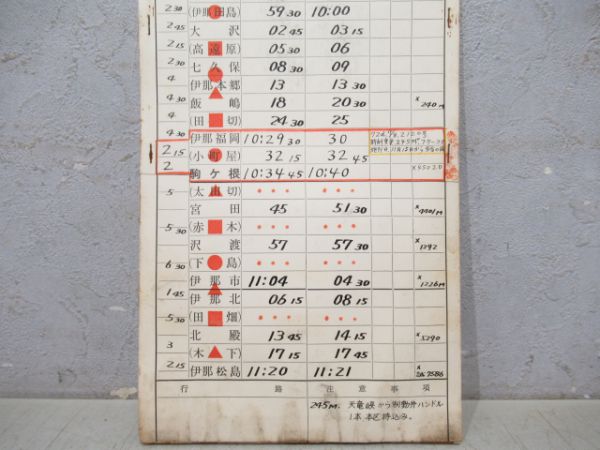 2 30 (伊那田島) 59 30 10:00
2 45 大沢 02 45 03 15
2 15 (高遠原) 05 30 06
2 45 七久保 08 30 09
4 伊那本郷 13 13 30
4 飯嶋 18 20 30 ×240M
4 30 (田切) 24 30 25
4 30 伊那福岡 10:29 30 30
2 15 (小町屋) 32 15 32 45
2 駒ケ根 10:34 45 10:40
5 (太田切) • • • • • •
宮田 45 51 30
(赤木) • • • • • •
5 30 沢渡 57 57 30 ×1292
(下島) • • • • • •
6 30 伊那市 11:04 04 30 ×1226M
1 45 伊那北 06 15 08 15
(田畑) • • • • • •
5 30 北殿 13 45 14 15 ×5290
3 (木下) 17 15 17 45
2 15 伊那松島 11:20 11:21
行路注意事項
245M. 天竜峡から制動弁ハンドル
1本本区持込み。